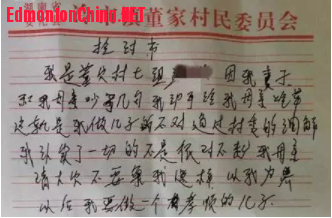 EdmontonChina.NET
镇董家村民委员会
检讨书
我是董家村七组 因我妻子
和我母亲吵了几句 我动手给我母亲吃苦
这就是我做儿子的不对 通过村委的调解
我认识了一切的不是 很对不起我母亲
请大家不要像我这样 以我为界
以后我要做一个有孝顺的儿子